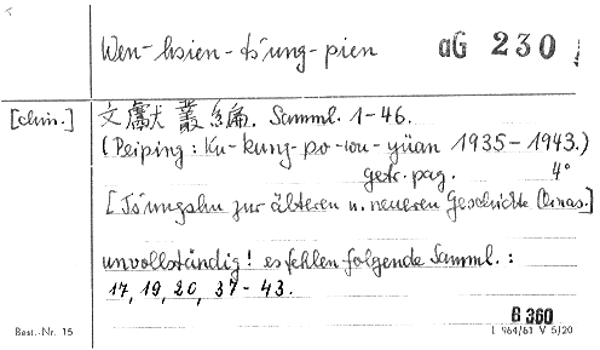 Wen-hsien-ts'ung-pien aG 230
[chin.] 文獻叢編. Samml. 1-46.
(Peiping: Ku-kung-po-wu-yüan 1935-1943.)
getr. pag. 4°
[Ts'ungshu zur älteren u. neueren Geschichte Chinas.]
unvollständig! es fehlen folgende Samml.:
17, 19, 20, 37-43.
B 360
Best.-Nr. 15 L 964/61 V 5/20